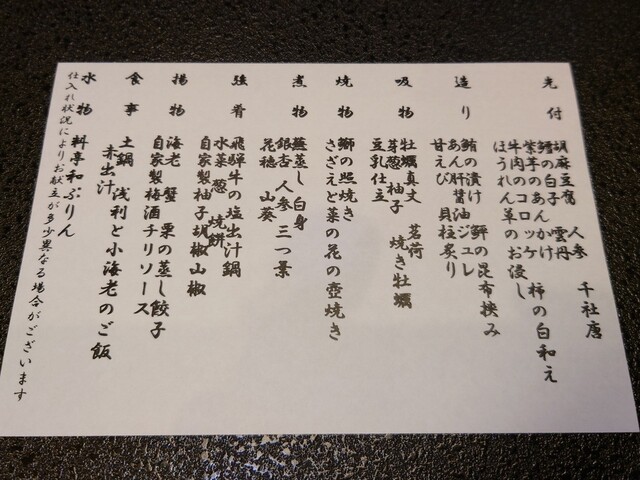 先付
胡麻豆腐 雲丹 人参 千社唐
鱈の白子 あんかけ
紫芋のコロッケ 柿の白和え
牛肉のお浸し
ほうれん草
造り
鮪の漬け 鮃の昆布挟み
あん肝醤油ジュレ
甘えび 貝柱炙り
吸物
牡蠣真丈 茗荷 焼き牡蠣
芽葱 柚子
豆乳仕立
焼物
鰤の照焼き
さざえと菜の花の壺焼き
煮物
蕪蒸し 白身
銀杏 人参 三つ葉
花穂 山葵
強肴
飛騨牛の塩出汁鍋
水菜 葱 焼餅
自家製柚子胡椒 山椒
揚物
海老 蟹 栗の蒸し餃子
自家製梅酒チリソース
食事
土鍋 浅利と小海老のご飯
赤出汁
水物
料亭和ぷりん
仕入れ状況によりお献立が多少異なる場合がございます